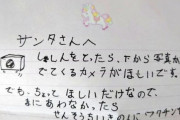 サンタさんへ
しゃしんをとったら、下から写真が
でてくるカメラがほしいです。
でも、ちょっとほしいだけなので、
まにあわなかったら
せんそうちいきの人にワクチンを